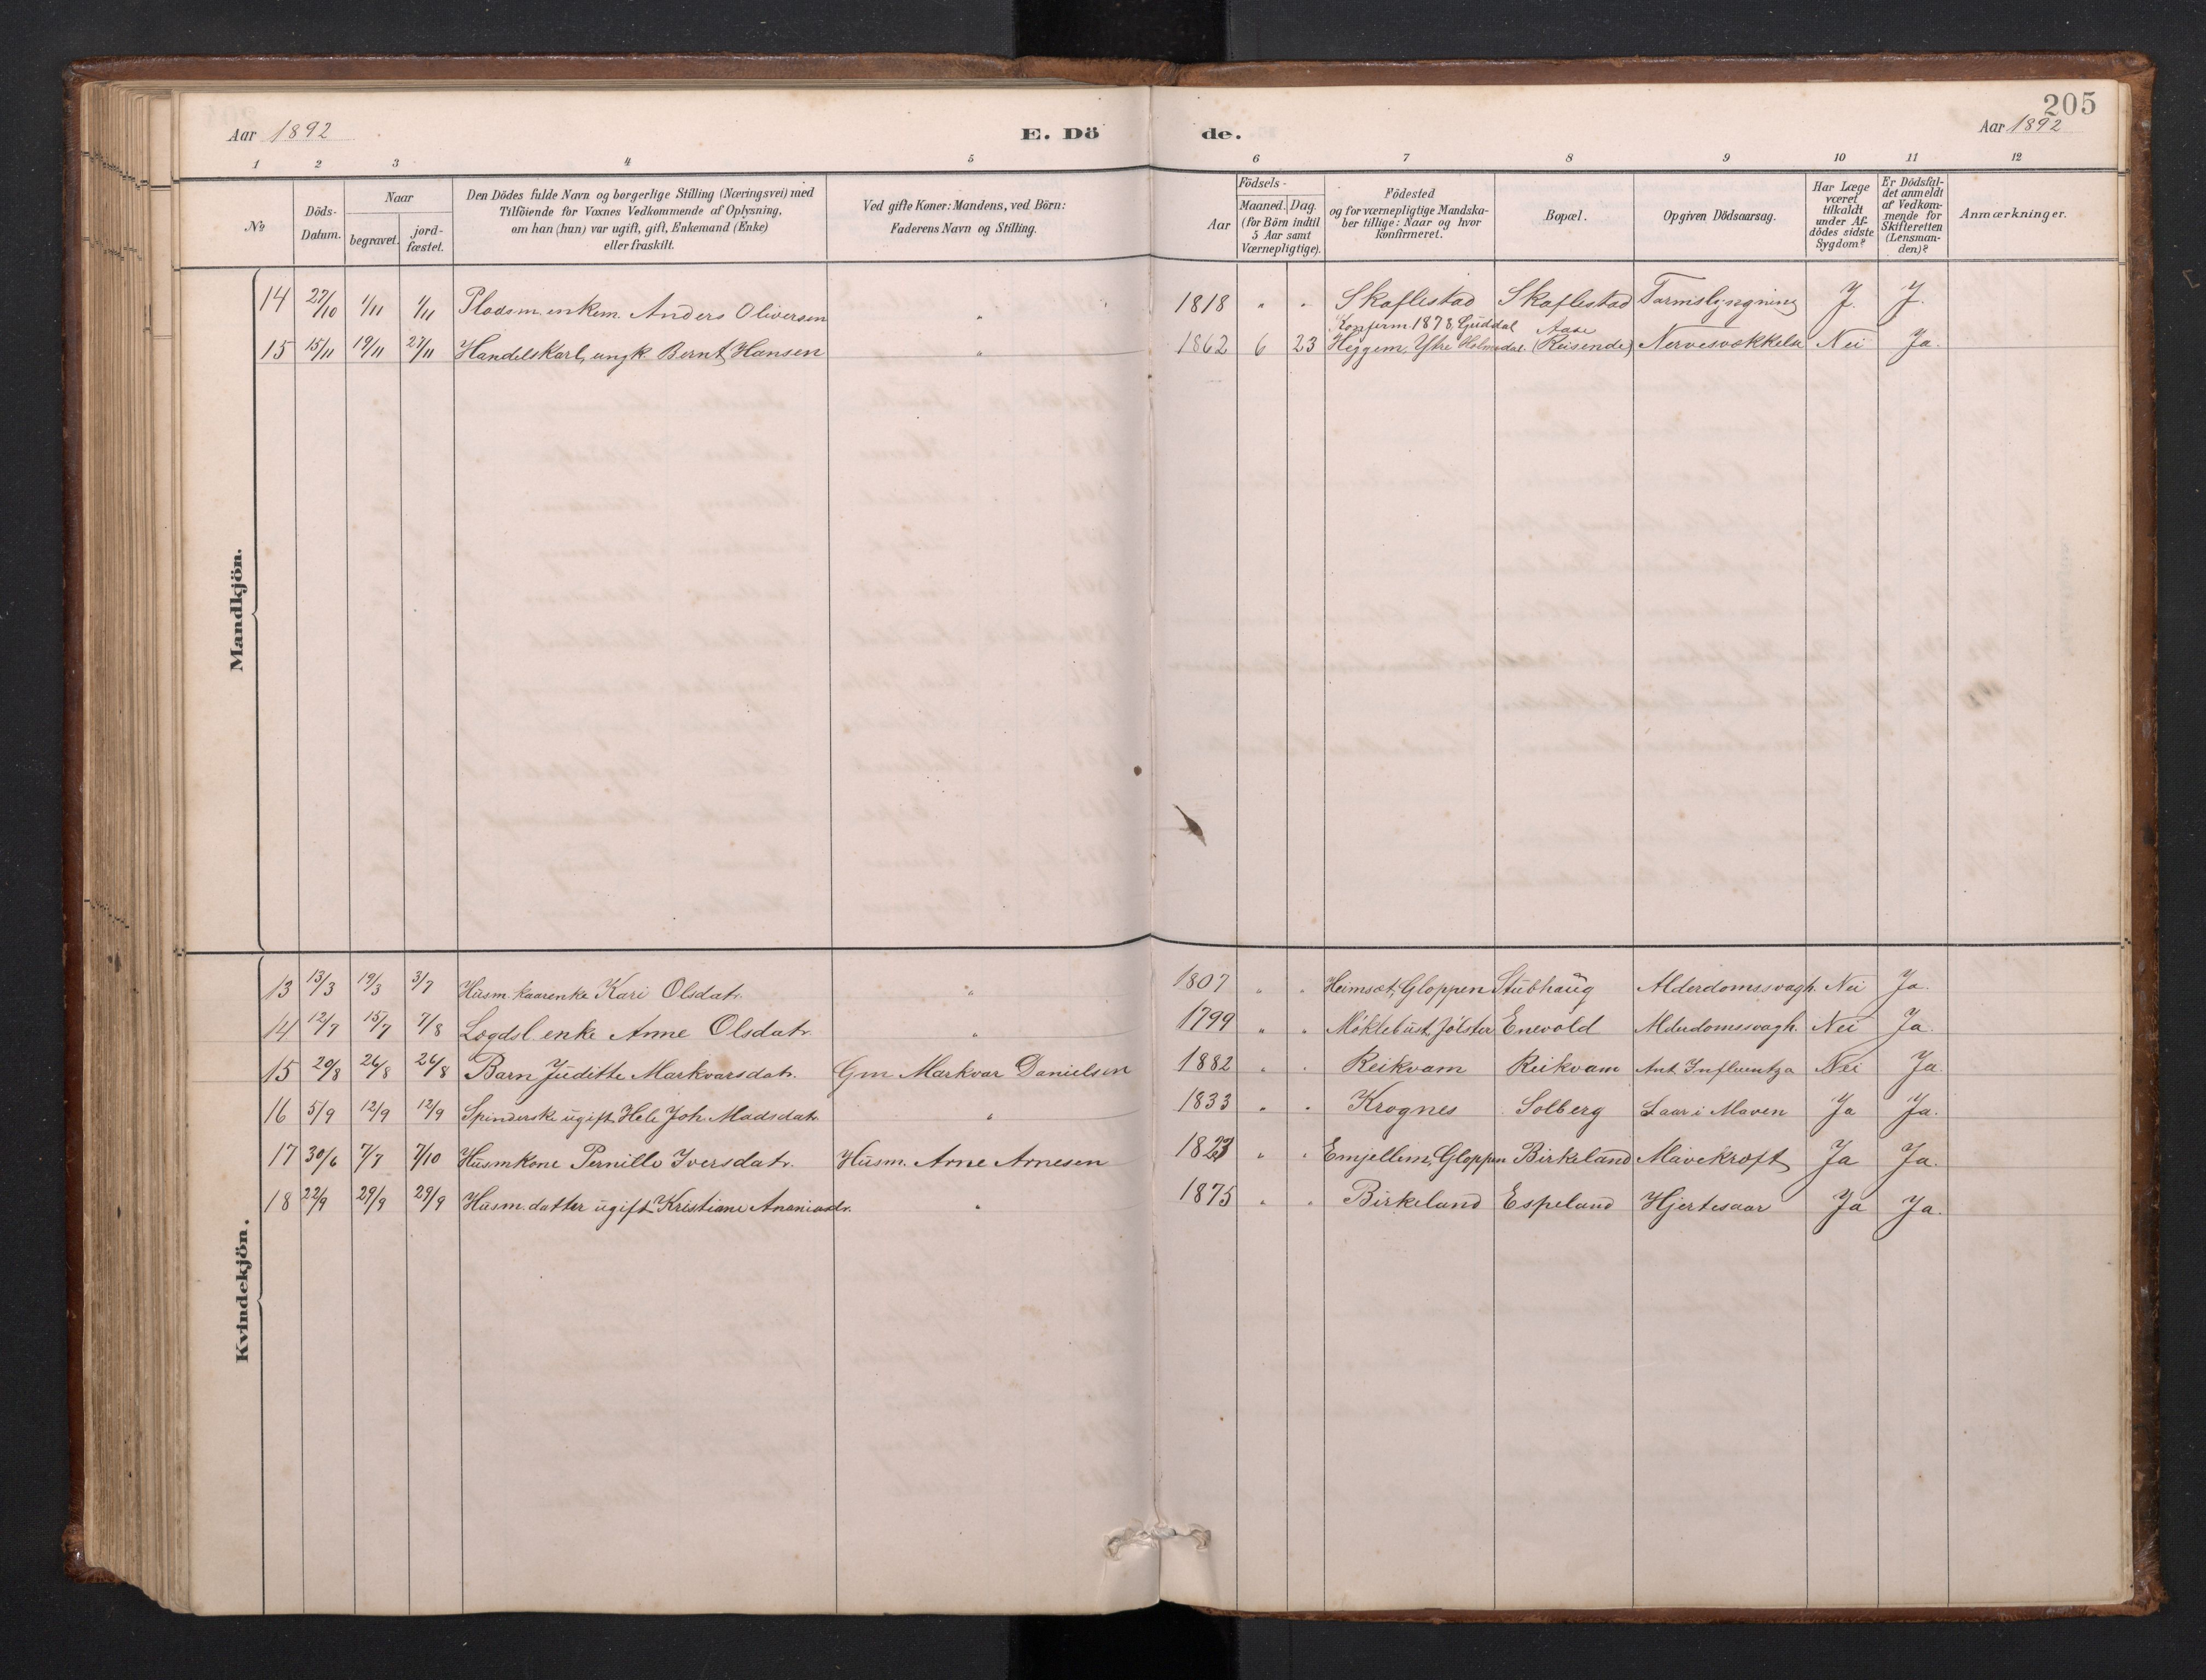 205
Aar 1892 E. Dö de. Aar 1892
1 2 3 4 5 6 7 8 9 10 11 12
No
Döds-Datum.
Naar
begravet.
jord-fæstet.
Den Dödes fulde Navn og borgerlige Stilling (Næringsvei) med
Tilföiende for Voxnes Vedkommende af Oplysning,
om han (hun) var ugift, gift, Enkemand (Enke)
eller fraskilt.
Ved gifte Koner: Mandens, ved Börn:
Faderens Navn og Stilling.
Födsels-
Aar
Maaned. Dag.
(for Börn indtil
5 Aar samt
Værnepligtige).
Födested
og for værnepligtige Mandska-
ber tillige: Naar og hvor
Konfirmeret.
Bopæl.
Opgiven Dödsaarsag.
Har Læge
været
tilkaldt
under Af-
dödes sidste
Sygdom?
Er Dödsfal-
det anmeldt
af Vedkom-
mende for
Skifteretten
(Lensman-
den)?
Anmærkninger.
Mandkjön.
14 27/10 1/11 1/11 Pladsm. enkem. Anders Oliversen " 1818 " " Skaflestad Skaflestad Tarmslyngning J. J.
Konfirm. 1878, Guddal Aase
15 15/11 19/11 27/11 Handelskarl, ungk. Bernt Hansen " 1862 6 23 Heggem, Ytre Holmedal (Reisende) Nervesvækkelse Nei Ja.
Kvindekjön.
13 13/3 19/3 3/7 Husm. kaarenke Kari Olsdatr. " 1807 " " Heimsæt, Gloppen Stubhaug Alderdomssvagh. Nei Ja.
14 12/7 15/7 7/8 Logdsl. enke Anne Olsdatr. " 1799 " " Møklebust, Jølster Enevold Alderdomssvagh. Nei Ja.
15 20/8 26/8 26/8 Barn Juditte Markvarsdatr. Gm Markvar Danielsen 1882 " " Reikvam Reikvam Ant. Influentza Nei Ja.
16 5/9 12/9 12/9 Spinderske ugift Hele Joh. Madsdatr. " 1833 " " Krognes Solberg Saar i Maven Ja Ja.
17 30/6 7/7 7/10 Husmkone Pernille Iversdatr. Husm. Arne Arnesen 1823 " " Emjellem, Gloppen Birkeland Mavekræft Ja Ja.
18 22/9 29/9 29/9 Husm. datter ugift Kristiane Ananiasdr. " 1875 " " Birkeland Espeland Hjertesaar Ja Ja.